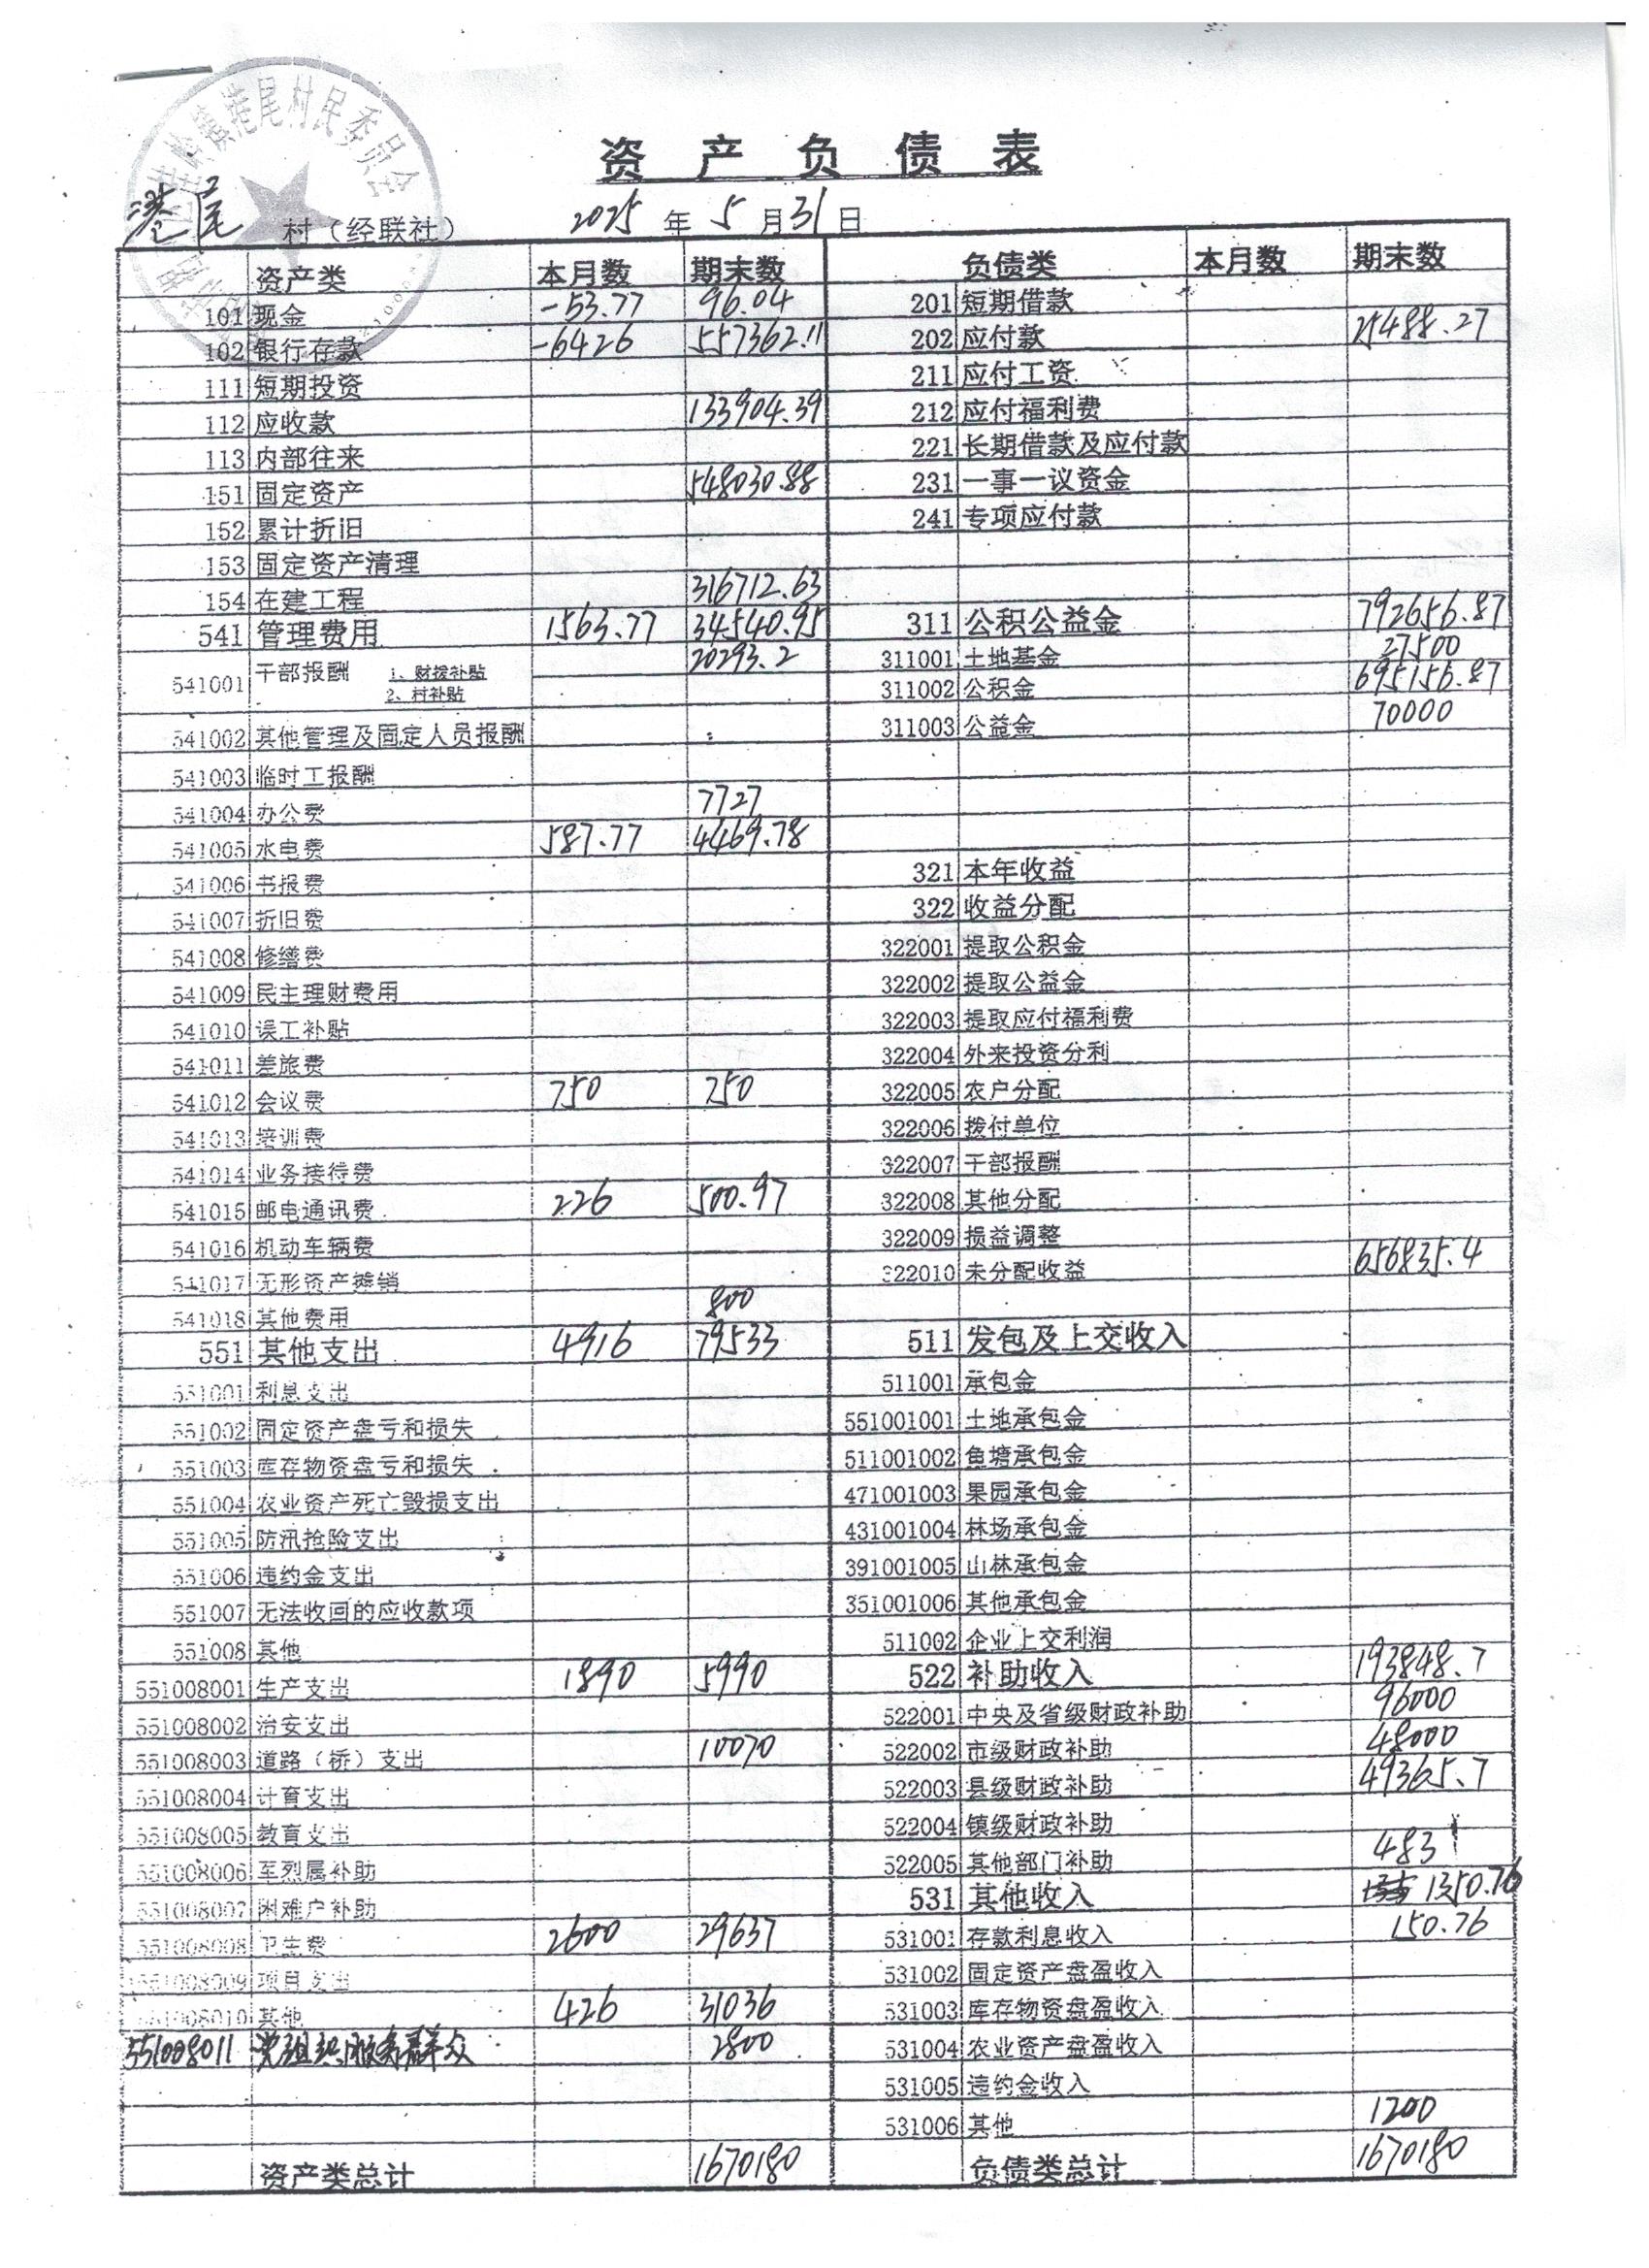 资产负债表
港尾 村（经联社） 2025 年 5 月 31 日
镇港尾村民委员会
资产类 本月数 期末数 负债类 本月数 期末数
101 现金 -53.77 96.04 201 短期借款
102 银行存款 -6426 557362.11 202 应付款 25488.27
111 短期投资 211 应付工资
112 应收款 133904.39 212 应付福利费
113 内部往来 221 长期借款及应付款
151 固定资产 548030.88 231 一事一议资金
152 累计折旧 241 专项应付款
153 固定资产清理
154 在建工程 316712.63
541 管理费用 1563.77 34540.95 311 公积公益金 792656.87
541001 干部报酬 1、财拨补贴 20293.2 311001 土地基金 27500
2、村补贴 311002 公积金 695156.87
541002 其他管理及固定人员报酬 311003 公益金 70000
541003 临时工报酬
541004 办公费 7727
541005 水电费 587.77 4469.78
541006 书报费 321 本年收益
541007 折旧费 322 收益分配
541008 修缮费 322001 提取公积金
541009 民主理财费用 322002 提取公益金
541010 误工补贴 322003 提取应付福利费
541011 差旅费 322004 外来投资分利
541012 会议费 750 750 322005 农户分配
541013 培训费 322006 拨付单位
541014 业务接待费 322007 干部报酬
541015 邮电通讯费 226 500.97 322008 其他分配
541016 机动车辆费 322009 损益调整
541017 无形资产摊销 322010 未分配收益 656835.4
541018 其他费用 800
551 其他支出 4916 79533 511 发包及上交收入
551001 利息支出 511001 承包金
551002 固定资产盘亏和损失 551001001 土地承包金
551003 库存物资盘亏和损失 511001002 鱼塘承包金
551004 农业资产死亡毁损支出 471001003 果园承包金
551005 防汛抢险支出 431001004 林场承包金
551006 违约金支出 391001005 山林承包金
551007 无法收回的应收款项 351001006 其他承包金
551008 其他 511002 企业上交利润
551008001 生产支出 1890 5990 522 补助收入 193848.7
551008002 治安支出 522001 中央及省级财政补助 96000
551008003 道路（桥）支出 10070 522002 市级财政补助 48000
551008004 计育支出 522003 县级财政补助 49365.7
551008005 教育支出 522004 镇级财政补助
551008006 军烈属补助 522005 其他部门补助 483
551008007 困难户补助 531 其他收入 1350.76
551008008 卫生费 2600 29637 531001 存款利息收入 150.76
551008009 项目支出 531002 固定资产盘盈收入
551008010 其他 426 31036 531003 库存物资盘盈收入
551008011 党组织服务群众 2800 531004 农业资产盘盈收入
531005 违约金收入
531006 其他 1200
资产类总计 1670180 负债类总计 1670180